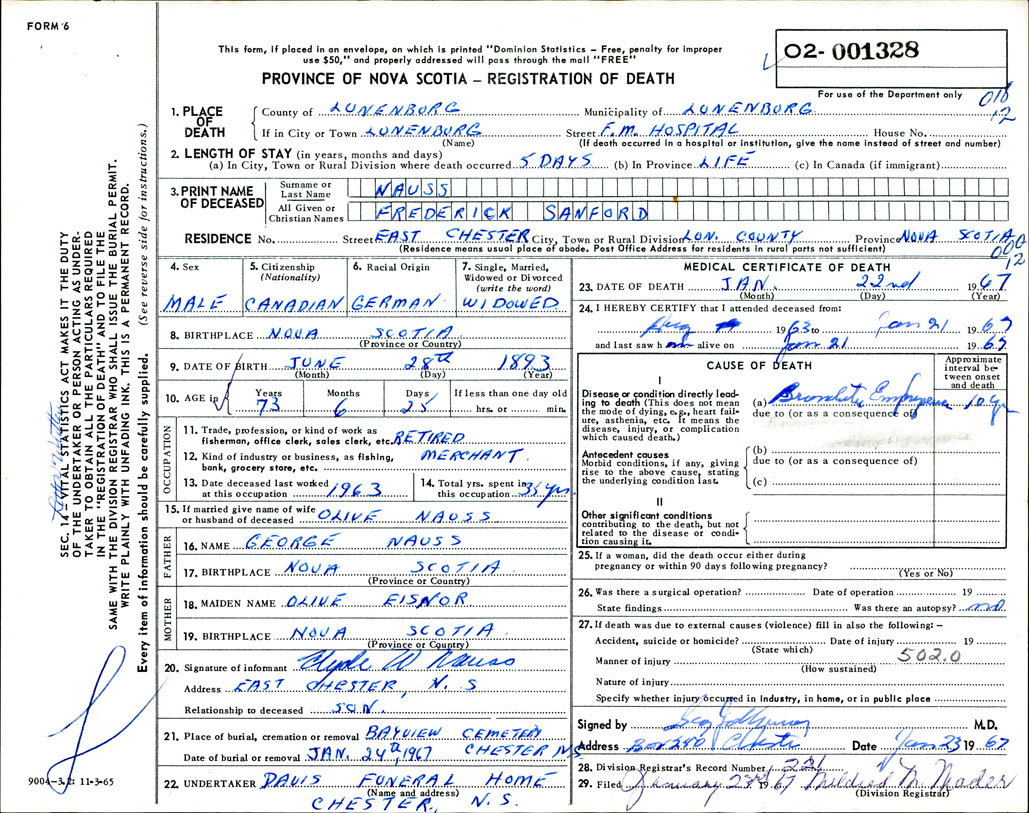 FORM 6
This form, if placed in an envelope, on which is printed "Dominion Statistics - Free, penalty for improper
use $50," and properly addressed will pass through the mail "FREE"
PROVINCE OF NOVA SCOTIA - REGISTRATION OF DEATH
02- 001328
For use of the Department only
018
12
1. PLACE OF DEATH
County of LUNENBURG Municipality of LUNENBURG
If in City or Town LUNENBURG Street F.M. HOSPITAL House No.
(Name) (If death occurred in a hospital or institution, give the name instead of street and number)
2. LENGTH OF STAY (in years, months and days)
(a) In City, Town or Rural Division where death occurred 5 DAYS (b) In Province LIFE (c) In Canada (if immigrant)
3. PRINT NAME OF DECEASED
Surname or Last Name NAUSS
All Given or Christian Names FREDERICK SANFORD
RESIDENCE No. Street EAST CHESTER City, Town or Rural Division LUN. COUNTY Province NOVA SCOTIA
(Residence means usual place of abode. Post Office Address for residents in rural parts not sufficient)
000
12
4. Sex
MALE
5. Citizenship
(Nationality)
CANADIAN
6. Racial Origin
GERMAN
7. Single, Married,
Widowed or Divorced
(write the word)
WIDOWED
8. BIRTHPLACE NOVA SCOTIA
(Province or Country)
9. DATE OF BIRTH JUNE 28th 1893
(Month) (Day) (Year)
10. AGE in
Years Months Days If less than one day old
73 6 25 hrs. or min.
OCCUPATION
11. Trade, profession, or kind of work as
fisherman, office clerk, sales clerk, etc. RETIRED
12. Kind of industry or business, as fishing, MERCHANT
bank, grocery store, etc.
13. Date deceased last worked
at this occupation 1963
14. Total yrs. spent in
this occupation 35 yrs
15. If married give name of wife
or husband of deceased OLIVE NAUSS
FATHER
16. NAME GEORGE NAUSS
17. BIRTHPLACE NOVA SCOTIA
(Province or Country)
MOTHER
18. MAIDEN NAME OLIVE EISNOR
19. BIRTHPLACE NOVA SCOTIA
(Province or Country)
20. Signature of informant Clyde W Nauss
Address EAST CHESTER, N. S
Relationship to deceased SON.
21. Place of burial, cremation or removal BAYVIEW CEMETERY
Date of burial or removal JAN. 24th, 1967 CHESTER N.S
22. UNDERTAKER DAVIS FUNERAL HOME
(Name and address)
CHESTER, N. S.
MEDICAL CERTIFICATE OF DEATH
23. DATE OF DEATH JAN. 22nd 1967
(Month) (Day) (Year)
24. I HEREBY CERTIFY that I attended deceased from:
1963 to Jan 21 1967
and last saw him alive on Jan 21 1967
CAUSE OF DEATH
Approximate
interval be-
tween onset
and death
I
Disease or condition directly lead-
ing to death (This does not mean
the mode of dying, e.g., heart fail-
ure, asthenia, etc. It means the
disease, injury, or complication
which caused death.)
(a) 10 yr
due to (or as a consequence of)
Antecedent causes
Morbid conditions, if any, giving
rise to the above cause, stating
the underlying condition last.
(b)
due to (or as a consequence of)
(c)
II
Other significant conditions
contributing to the death, but not
related to the disease or condi-
tion causing it.
25. If a woman, did the death occur either during
pregnancy or within 90 days following pregnancy?
(Yes or No)
26. Was there a surgical operation? Date of operation 19
State findings Was there an autopsy? no
27. If death was due to external causes (violence) fill in also the following: -
Accident, suicide or homicide? Date of injury 19
(State which)
Manner of injury 502.0
(How sustained)
Nature of injury
Specify whether injury occurred in industry, in home, or in public place
Signed by M.D.
Address Box 280 Chester Date Jan 23 1967
28. Division Registrar's Record Number 221
29. Filed January 23rd 1967 Mildred M. Nader
(Division Registrar)
SEC. 14 - VITAL STATISTICS ACT MAKES IT THE DUTY
OF THE UNDERTAKER OR PERSON ACTING AS UNDER-
TAKER TO OBTAIN ALL THE PARTICULARS REQUIRED
IN THE "REGISTRATION OF DEATH" AND TO FILE THE
SAME WITH THE DIVISION REGISTRAR WHO SHALL ISSUE THE BURIAL PERMIT.
WRITE PLAINLY WITH UNFADING INK. THIS IS A PERMANENT RECORD.
Every item of information should be carefully supplied. (See reverse side for instructions.)
9004-3.2: 11-3-65